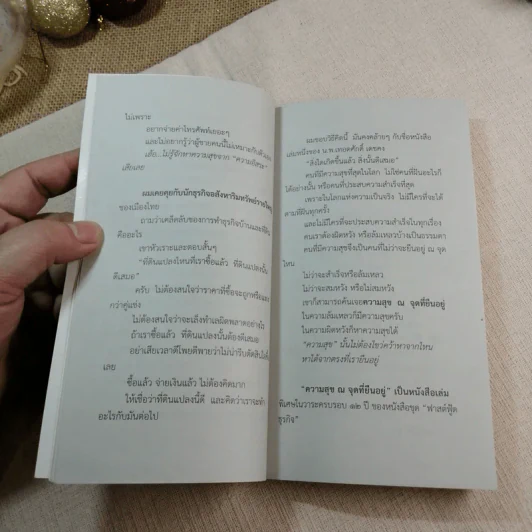 ไม่เพราะ
อยากจ่ายค่าโทรศัพท์เยอะๆ
และไม่อยากรู้ว่าผู้ชายคนนี้ไม่เหมาะกับตัวเอง
เสีย..ไม่รู้จักหาความสุขจาก "ความพิเศษ"
เสียเลย
ผมเคยคุยกับนักธุรกิจอสังหาริมทรัพย์รายใหญ่
ของเมืองไทย
ถามว่าเคล็ดลับของการทำธุรกิจบ้านและที่ดิน
คืออะไร
เขาหัวเราะและตอบสั้นๆ
"ที่ดินแปลงไหนที่เราซื้อแล้ว ที่ดินแปลงนั้น
ดีเสมอ"
ครับ ไม่ต้องสนใจว่าราคาที่ซื้อจะถูกหรือแพง
กว่าคู่แข่ง
ไม่ต้องสนใจว่าจะเล็งทำเลผิดพลาดอย่างไร
ถ้าเราซื้อแล้ว ที่ดินแปลงนั้นต้องดีเสมอ
อย่าเสียเวลาตีโพยตีพายว่าไม่น่ารีบตัดสินใจ
เลย
ซื้อแล้ว จ่ายเงินแล้ว ไม่ต้องคิดมาก
ให้เชื่อว่าที่ดินแปลงนี้ดี และคิดว่าเราจะทำ
อะไรกับมันต่อไป
ผมชอบวิธีคิดนี้ มันคงคล้ายๆ กับชื่อหนังสือ
เล่มหนึ่งของ น.พ.เทอดศักดิ์ เดชคง
"สิ่งใดเกิดขึ้นแล้ว สิ่งนั้นดีเสมอ"
คนที่มีความสุขที่สุดในโลก ไม่ใช่คนที่ฝันอะไรก็
ได้อย่างนั้น หรือคนที่ประสบความสำเร็จที่สุด
เพราะในโลกแห่งความเป็นจริง ไม่มีใครที่จะได้
ตามที่ฝันทุกครั้ง
และไม่มีใครที่จะประสบความสำเร็จในทุกเรื่อง
คนเราต้องผิดหวัง หรือล้มเหลวบ้างเป็นธรรมดา
คนที่มีความสุขจึงเป็นคนที่ไม่ว่าจะยืนอยู่ ณ จุด
ไหน
ไม่ว่าจะสำเร็จหรือล้มเหลว
ไม่ว่าจะสมหวัง หรือไม่สมหวัง
เขาก็สามารถค้นเจอความสุข ณ จุดที่ยืนอยู่
ในความล้มเหลวก็มีความสุขครับ
ในความผิดหวังก็หาความสุขได้
"ความสุข" นั้นไม่ต้องไขว่คว้าหาจากไหน
หาได้จากตรงที่เรายืนอยู่
"ความสุข ณ จุดที่ยืนอยู่" เป็นหนังสือเล่ม
พิเศษในวาระครบรอบ ๑๒ ปี ของหนังสือชุด "ฟาสต์ฟู้ด
ธุรกิจ"